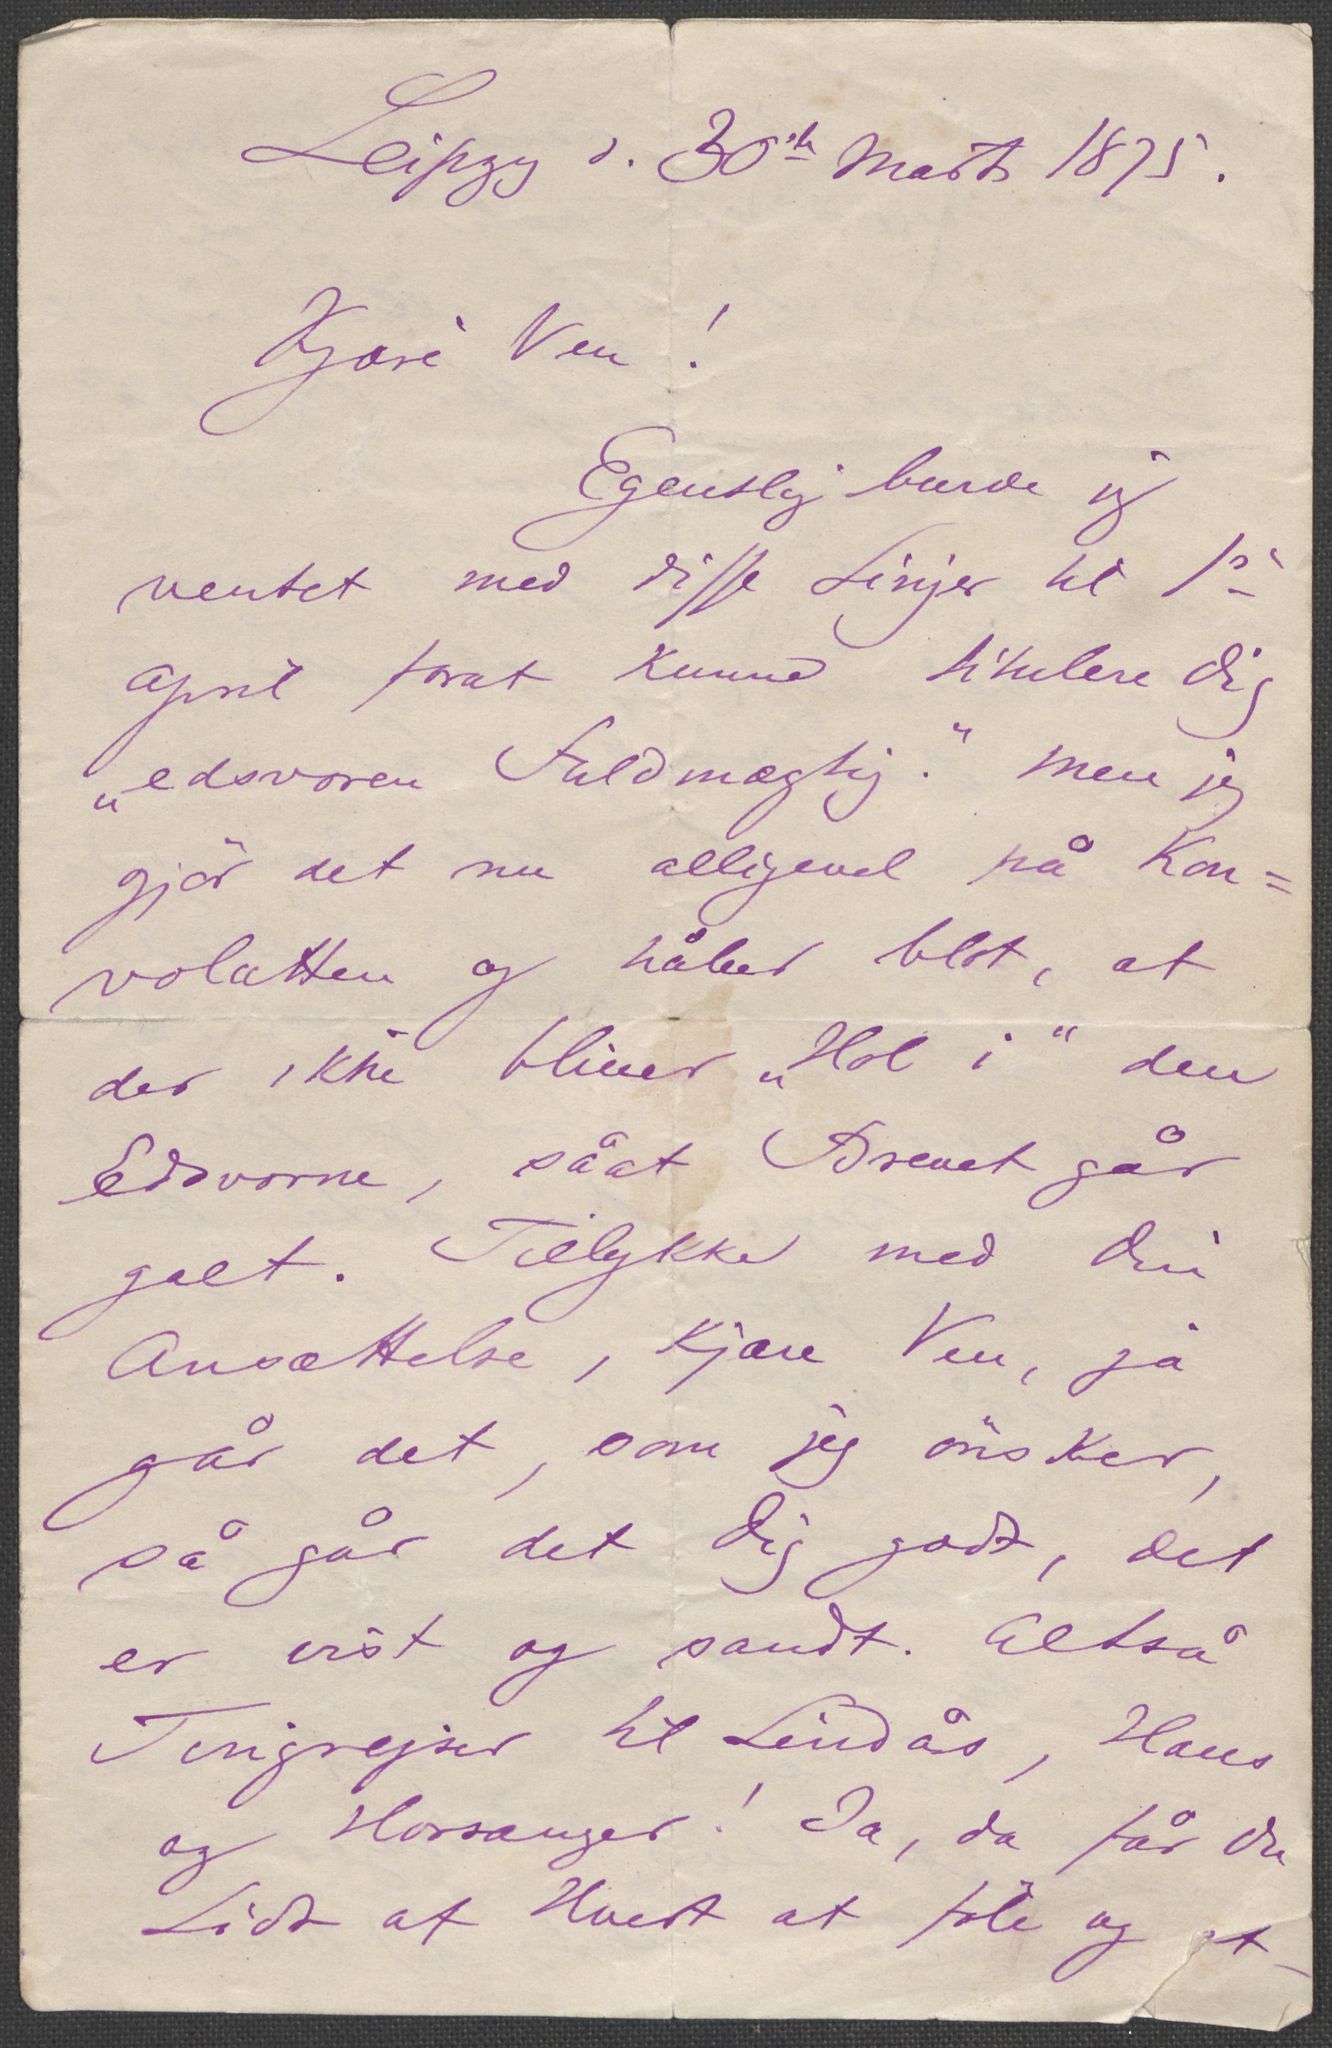 Leipzig d. 30te Marts 1875.
Kjære Ven!
Egentlig burde jeg
ventet med disse Linjer til 1te
April forat kunne titulere Dig
„edsvoren Fuldmægtig.“ Men jeg
gjör det nu alligevel på Kon=
volutten og håber blot, at
der ikke bliver „Hol i“ den
Edsvorne, såat Brevet går
galt. Tillykke med din
Ansættelse, kjære Ven, ja
går det, som jeg önsker,
så går det Dig godt, det
er vist og sandt. Altså
Tingrejser til Lindås, Haus
og Hosanger! Ja, da får du
Lidt af Hvert at föle og